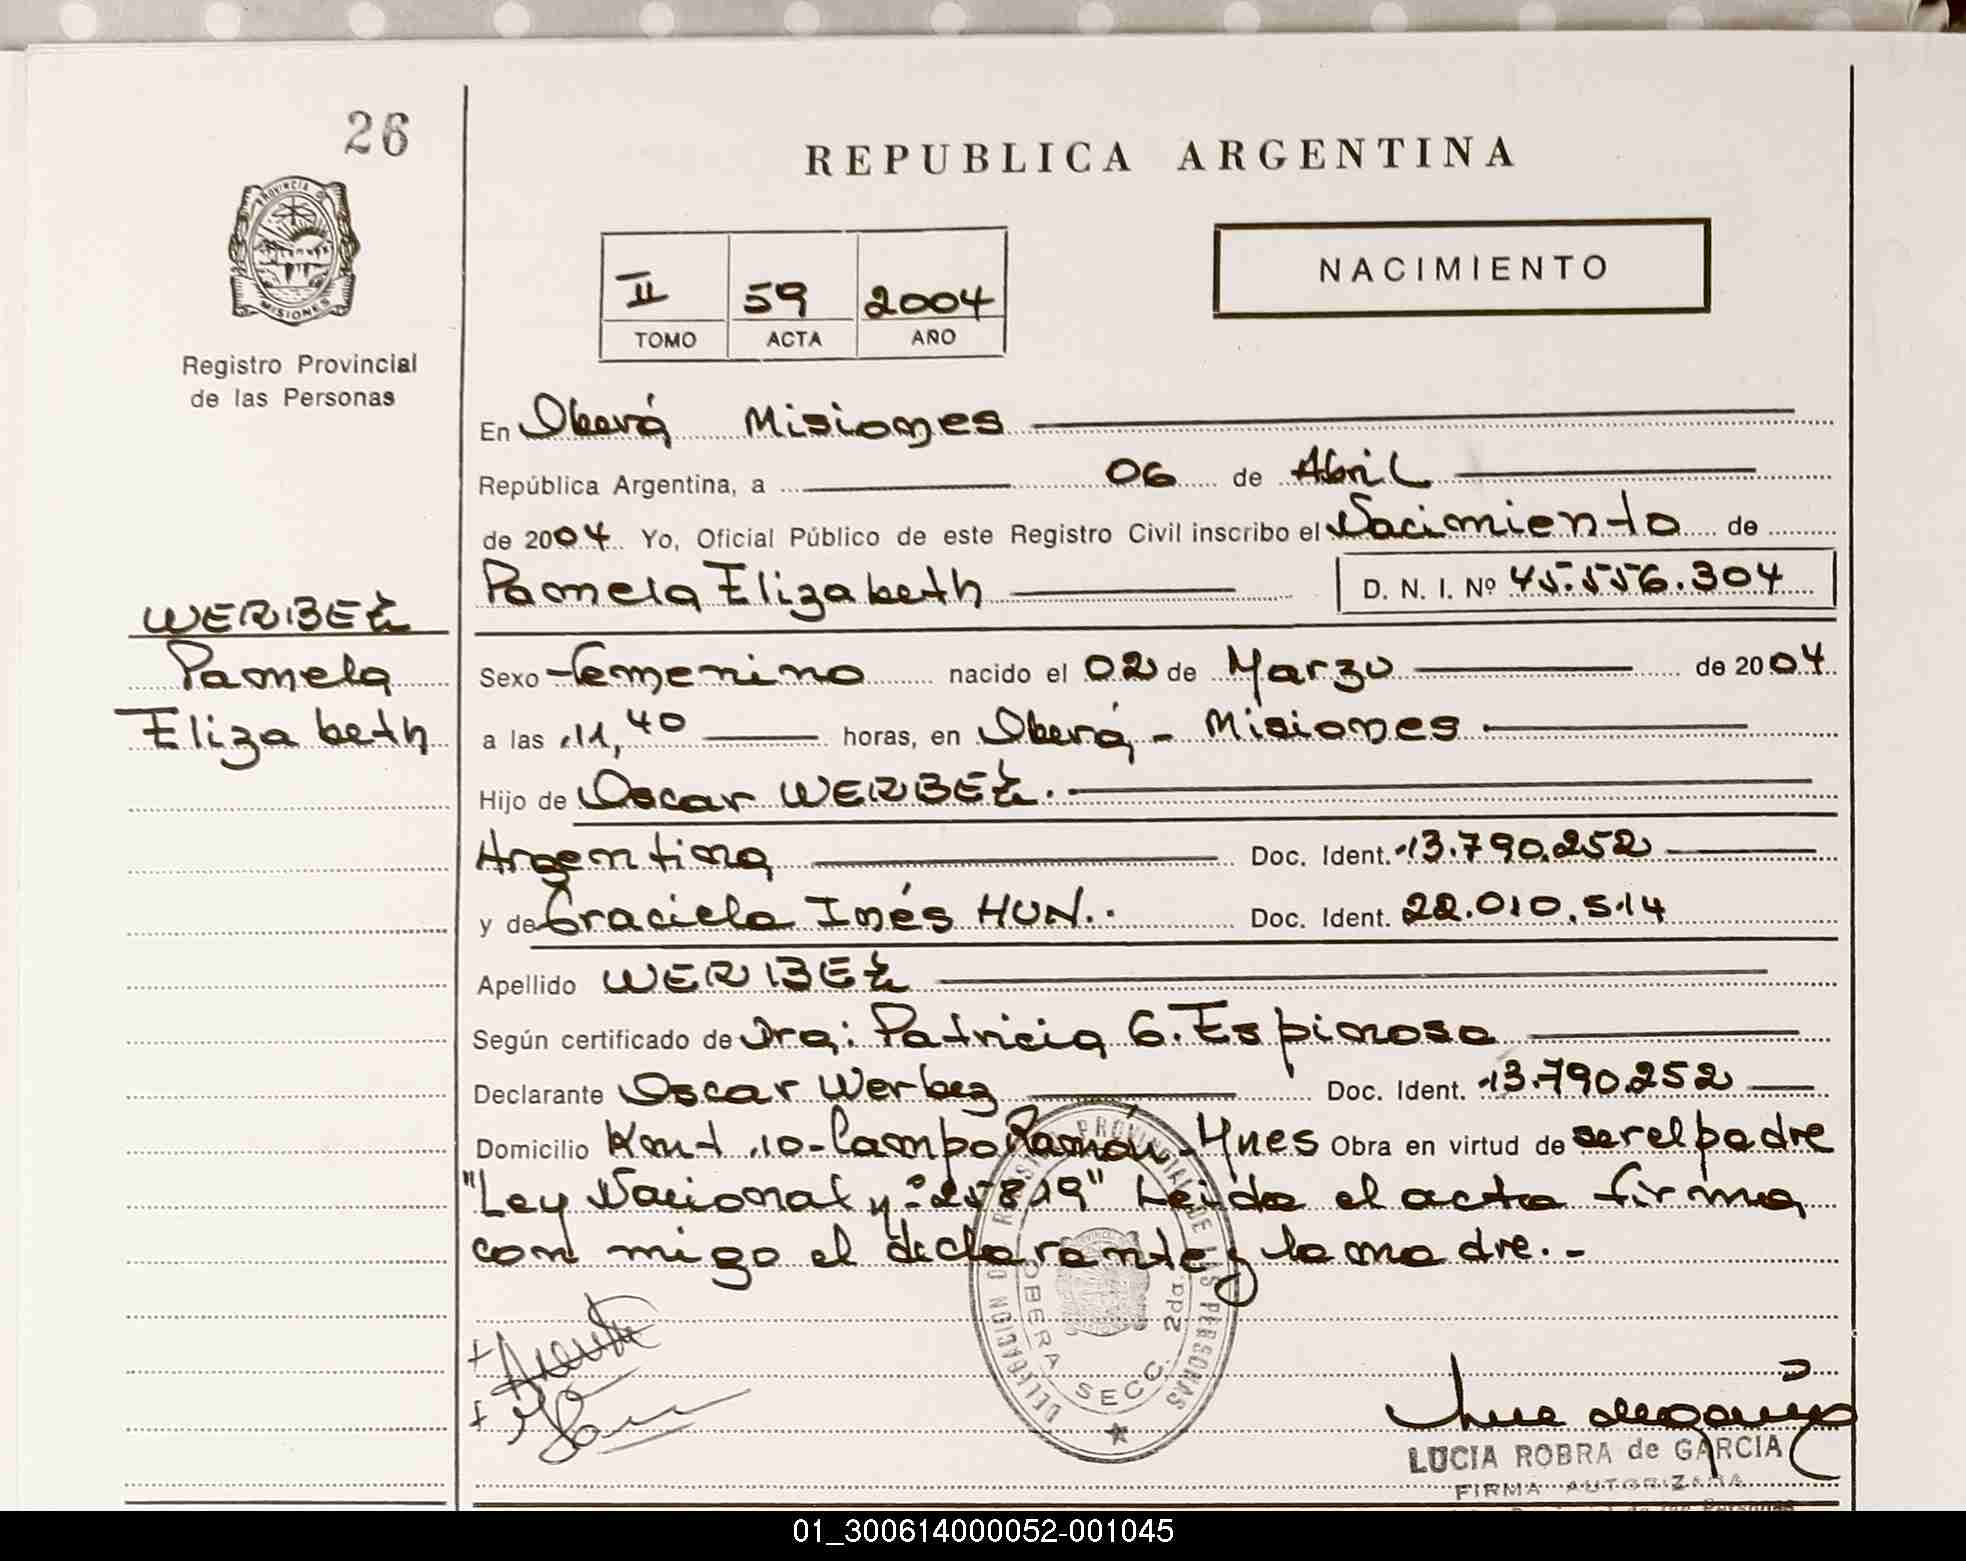 26
REPUBLICA ARGENTINA
PROVINCIA DE
MISIONES
Registro Provincial
de las Personas
II 59 2004
TOMO ACTA AÑO
NACIMIENTO
En Oberá Misiones
República Argentina, a 06 de Abril
de 2004 Yo, Oficial Público de este Registro Civil inscribo el Nacimiento de
Pamela Elizabeth D. N. I. Nº 45.556.304
WERBEZ
Pamela
Elizabeth
Sexo femenino nacido el 02 de Marzo de 2004
a las 11,40 horas, en Oberá - Misiones
Hijo de Oscar WERBEZ.
Argentina Doc. Ident. 13.790.252
y de Graciela Inés HUN.. Doc. Ident. 22.010.514
Apellido WERBEZ
Según certificado de Dra: Patricia G. Espinosa
Declarante Oscar Werbez Doc. Ident. 13.790.252
Domicilio Kmt 10-Campo Ramón-Mnes Obra en virtud de ser el padre
"Ley Nacional nº 25819" Leida el acta firma
con migo el declarante y la madre.-
DELEGACION DE REGISTRO PROVINCIAL DE LAS PERSONAS
OBERA SECC. 2da.
LUCIA ROBRA de GARCIA
FIRMA AUTORIZADA
de las Personas
01_300614000052-001045